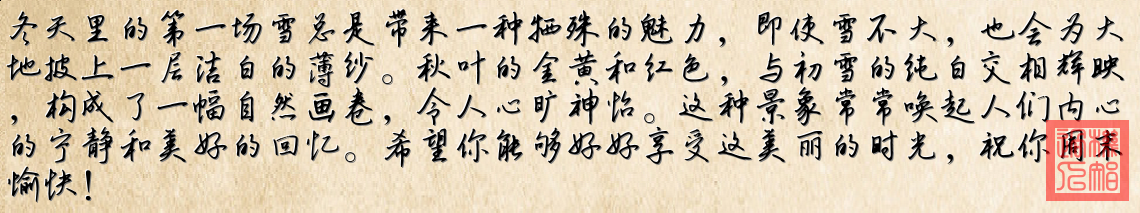 冬天里的第一场雪总是带来一种牺殊的魅力，即使雪不大，也会为大
地披上一层洁白的薄纱。秋叶的金黄和红色，与初雪的纯白交相辉映
，构成了一幅自然画卷，令人心旷神怡。这种景象常常唤起人们内心
的宁静和美好的回忆。希望你能够好好享受这美丽的时光，祝你周末
愉快！